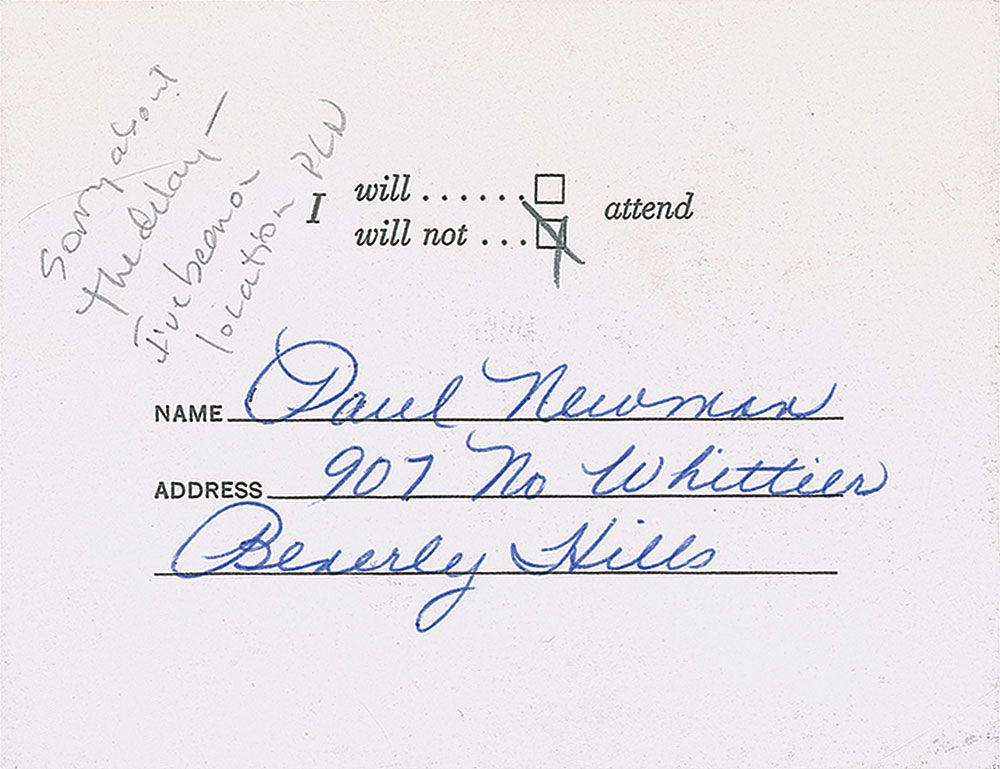 Sorry about
the delay —
I've been on
location PLN
I will ...... ☐ attend
will not ... ☒
NAME Paul Newman
ADDRESS 907 No Whittier
Beverly Hills